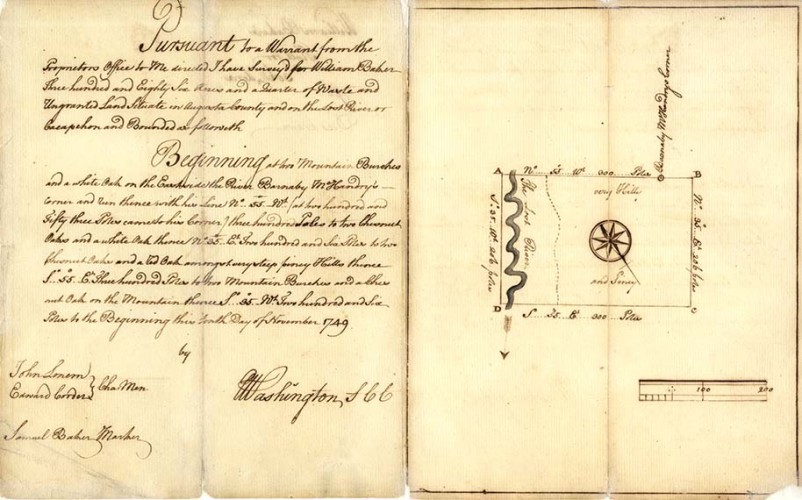 Pursuant to a Warrant from the
Proprietors Office to Me directed I have Survey'd for William Baker
Three hundred and Eighty Six Acres and a Quarter of Waste and
Ungranted Land Situate in Augusta County and on the Lost River or
Cacapehon and Bounded as followeth
Beginning at two Mountain Burches
and a white Oak on the Eastside the River Barnaby McHandry's
Corner and Run thence with his Line No. 55 Wt. (at two hundred and
Fifty three Poles came to his Corner) three hundred Poles to two Chesnut
Oakes and a white Oak thence No. 35. Et. Two hundred and Six Poles to two
Chesnut Oakes and a Red Oak amongst very steep piney Hills thence
So. 55. Et. Three hundred Poles to two Mountain Burches and a Ches
nut Oak on the Mountain thence So. 35. Wt. Two hundred and Six
Poles to the Beginning this tenth Day of November 1749
by
John Lonem
Edward Corder
Cha Men
Washington, S C C
Samuel Baker Marker
Barnaby McHandrys Corner
A No. 55 Wt. 300 Poles B
very Hilly
The Lost River
So. 35. Wt. 206 poles
No. 35. Et. 206 poles
and Piney
D C
So. 55. Et. 300 Poles
100 200